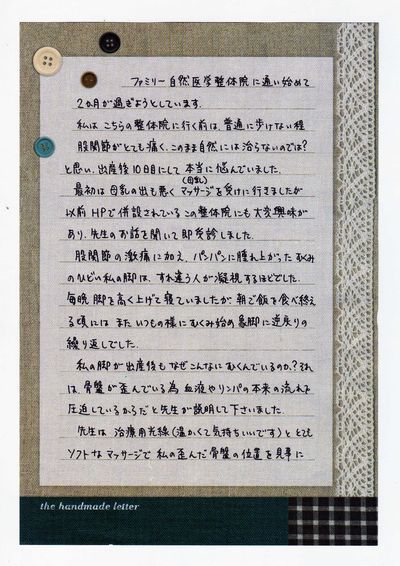 ファミリー自然医学整体院に通い始めて
2ヵ月が過ぎようとしています。
私は こちらの整体院に行く前は、普通に歩けない程
股関節がとても痛く、このまま自然には治らないのでは?
と思い、出産後10日目にして 本当に悩んでいました。
(母乳)
最初は 母乳の出も悪く マッサージを受けに行きましたが
以前HPで併設されている この整体院にも大変興味が
あり、先生のお話を聞いて即受診しました。
股関節の激痛に加え、パンパンに腫れ上がった むくみ
のひどい私の脚は、すれ違う人が凝視するほどでした。
毎晩 脚を高く上げて寝ていましたが 朝ご飯を食べ終え
る頃には また いつもの様にむくみ始め 象脚に逆戻りの
繰り返しでした。
私の脚が出産後も なぜこんなに むくんでいるのか?それ
は、骨盤が歪んでいる為 血液やリンパの本来の流れを
圧迫しているからだ と先生が説明して下さいました。
先生は 治療用光線(温かくて気持ちいいです)と とても
ソフトな マッサージで 私の歪んだ骨盤の位置を見事に
the handmade letter